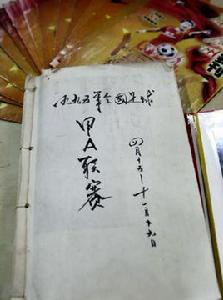 一九九五年全國足球
甲A联赛
四月十六~十一月十九日